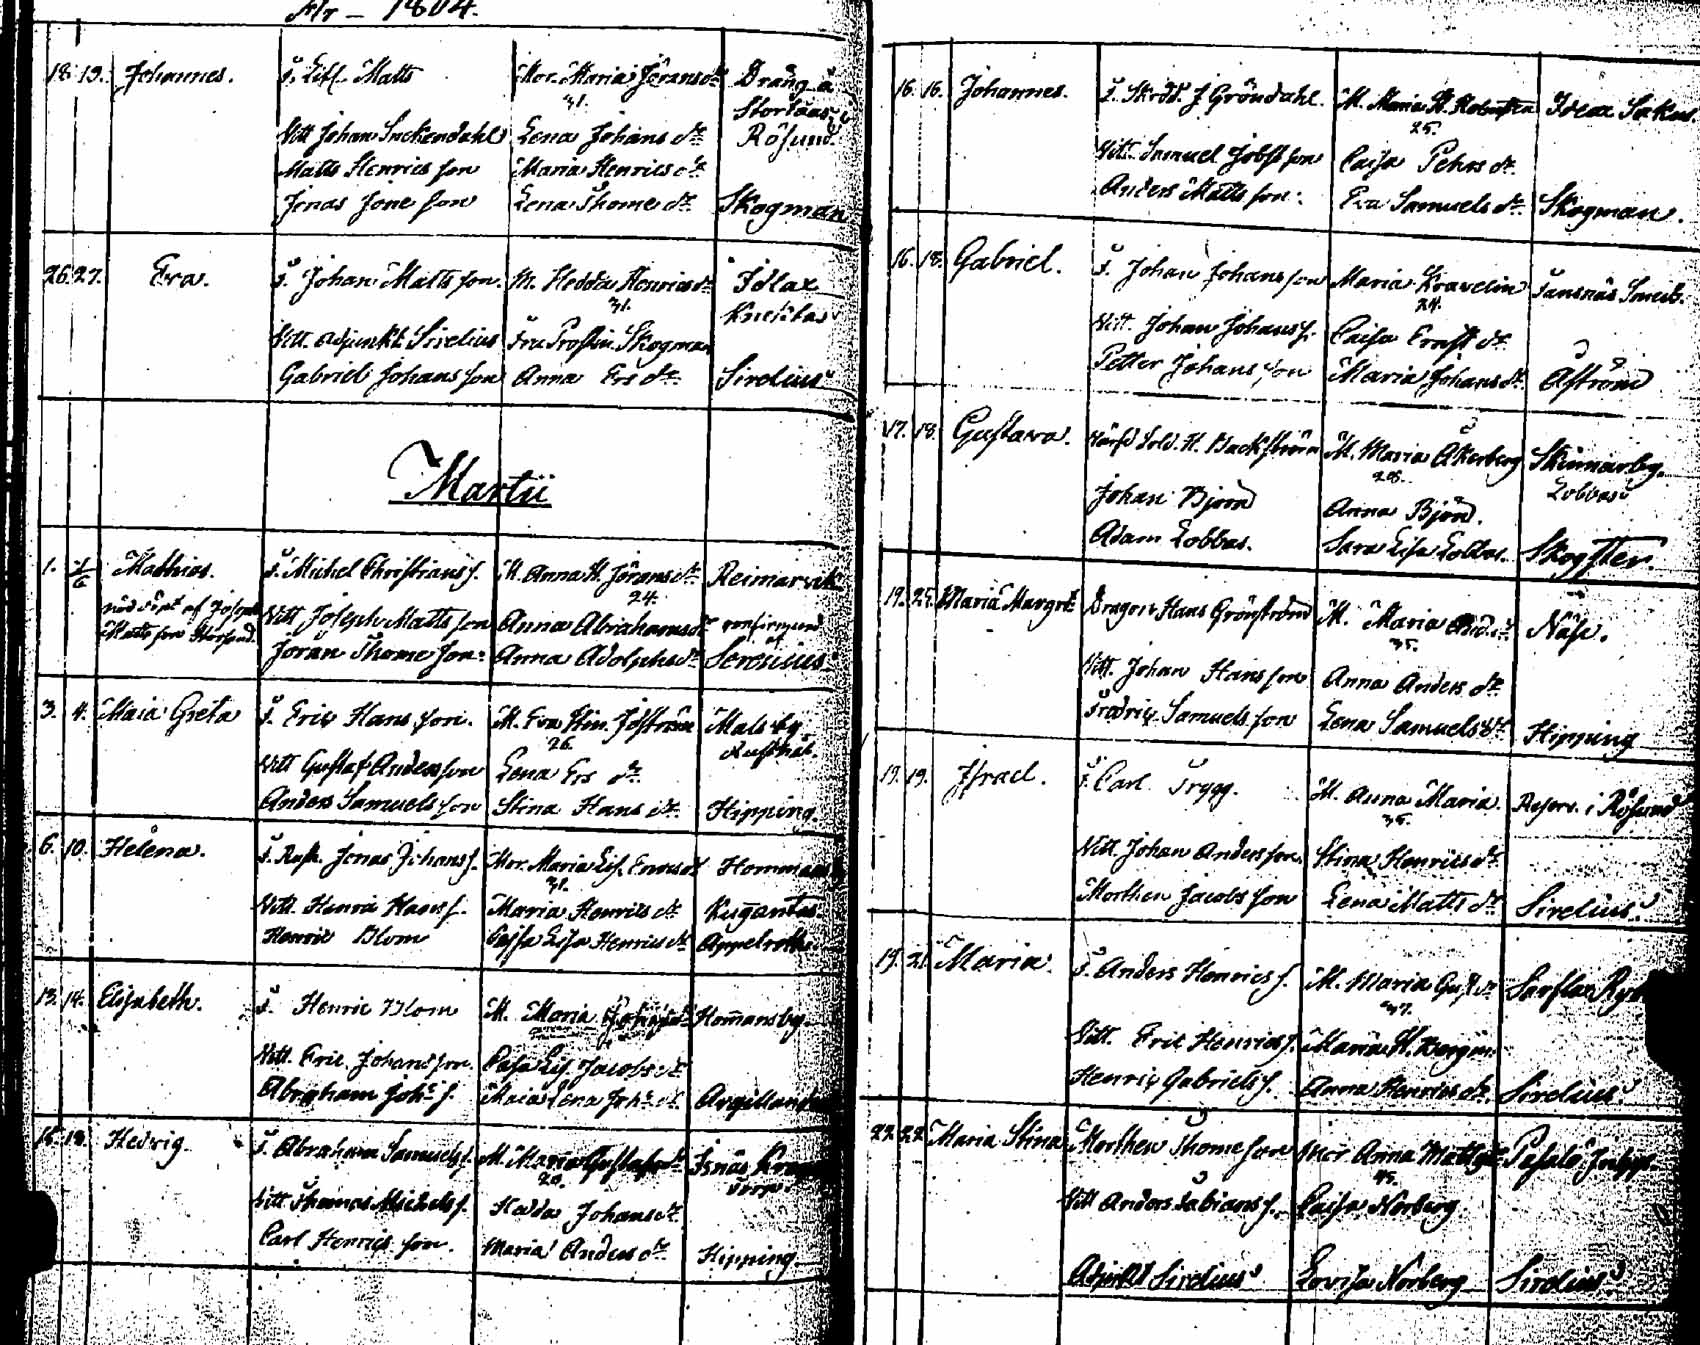 År – 1804.
18. 19. Johannes.
F. Matts
Mor. Maria Jörans dr
31.
Dräng å
Rösund.
Vitt Johan Suckendahl
Lena Johans dr
Matts Henrics son
Maria Henrics dr
Jonas Jone son
Lena Thome dr
Skogman
26. 27. Eva.
F. Johan Matts son.
M. Hedda Henrics dr
31.
Idlax
Vitt. Adjunkt Sirelius
Fru Prostin. Skogman
Gabriel Johans son
Anna Ers dr.
Sirelius
Martii
1. Mathias.
nöd döpt af Joseph
Matts son
F. Michel Christians s.
M. Anna H. Jörans dr
24.
Reimarvik
Vitt Joseph Matts son
Anna Abrahams dr
confirmerad
af
Jöran Thome son
Anna Adolphs dr
3. 4. Maia Greta
F. Eric Hans son.
M. Eva
26.
Malsby
Rusthål.
Vitt Gustaf Anders son
Lena Ers dr.
Anders Samuels son
Stina Hans dr.
Hipping.
6. 10. Helena.
F. Rusth. Jonas Johans s.
Mor. Maria Lis.
31.
Vitt. Henric Hans s.
Maria Henrics dr
Henric Blom
Cajsa Lisa Henrics dr
Appelroth
13. 14. Elisabeth.
F. Henric Blom
M. Maria
Hom̄ansby.
Vitt. Eric Johans son.
Casa Lis. Jacobs dr
Abraham Joh: s.
Maia Lena Joh: dr.
Argillander
15. 18. Hedvig.
F. Abraham Samuels s.
M. Maria Gustafs dr
20.
Isnäs
Vitt Thomas Michels s.
Hedda Johans dr.
Carl Henrics son.
Maria Anders dr
Hipping.
16. 16. Johannes.
F. Skrdd. J Gröndahl.
M. Maria H.
25.
Vitt. Samuel Jobst son
Caisa Pehrs dr.
Anders Matts son.
Eva Samuels dr.
Skogman.
16. 18. Gabriel.
F. Johan Johans son
Maria Kravelin
24.
Vitt. Johan Johans s.
Caisa Ernst dr.
Petter Johans son
Maria Johans dr.
Åström
17. 18. Gustava.
Sold. H. Backström
M. Maria Åkerberg
28.
Skinnarby.
Lobbas
Johan Bjorn
Anna Björn.
Adam Lobbas.
Sara Lisa Lobbas.
Skogster.
19. 25. Maria Margrt.
Dragon. Hans Grönström
M. Maria And. dr.
35.
Näse.
Vitt. Johan Hans son
Anna Anders dr.
Fredric Samuels son
Lena Samuels dr
Hipping
19. 19. Israel.
F. Carl Trygg.
M. Anna Maria.
35.
Reserv. i Rösund
Vitt. Johan Anders son.
Stina Henrics dr.
Morthen Jacobs son
Lena Matts dr
Sirelius.
19. 21. Maria.
F. Anders Henrics s.
M. Maria Gust. dr
37.
Sarflax
Vitt. Eric Henrics s.
Maria H. Bergm:
Henric Gabriels s.
Anna Henrics dr.
Sirelius
22. 22. Maria Stina
Morthen Thome son
Mor Anna Matts dr
45.
Pasalö
Vitt Anders Fabians s.
Caisa Norberg.
Adjunkt Sirelius
Lovisa Norberg
Sirelius.